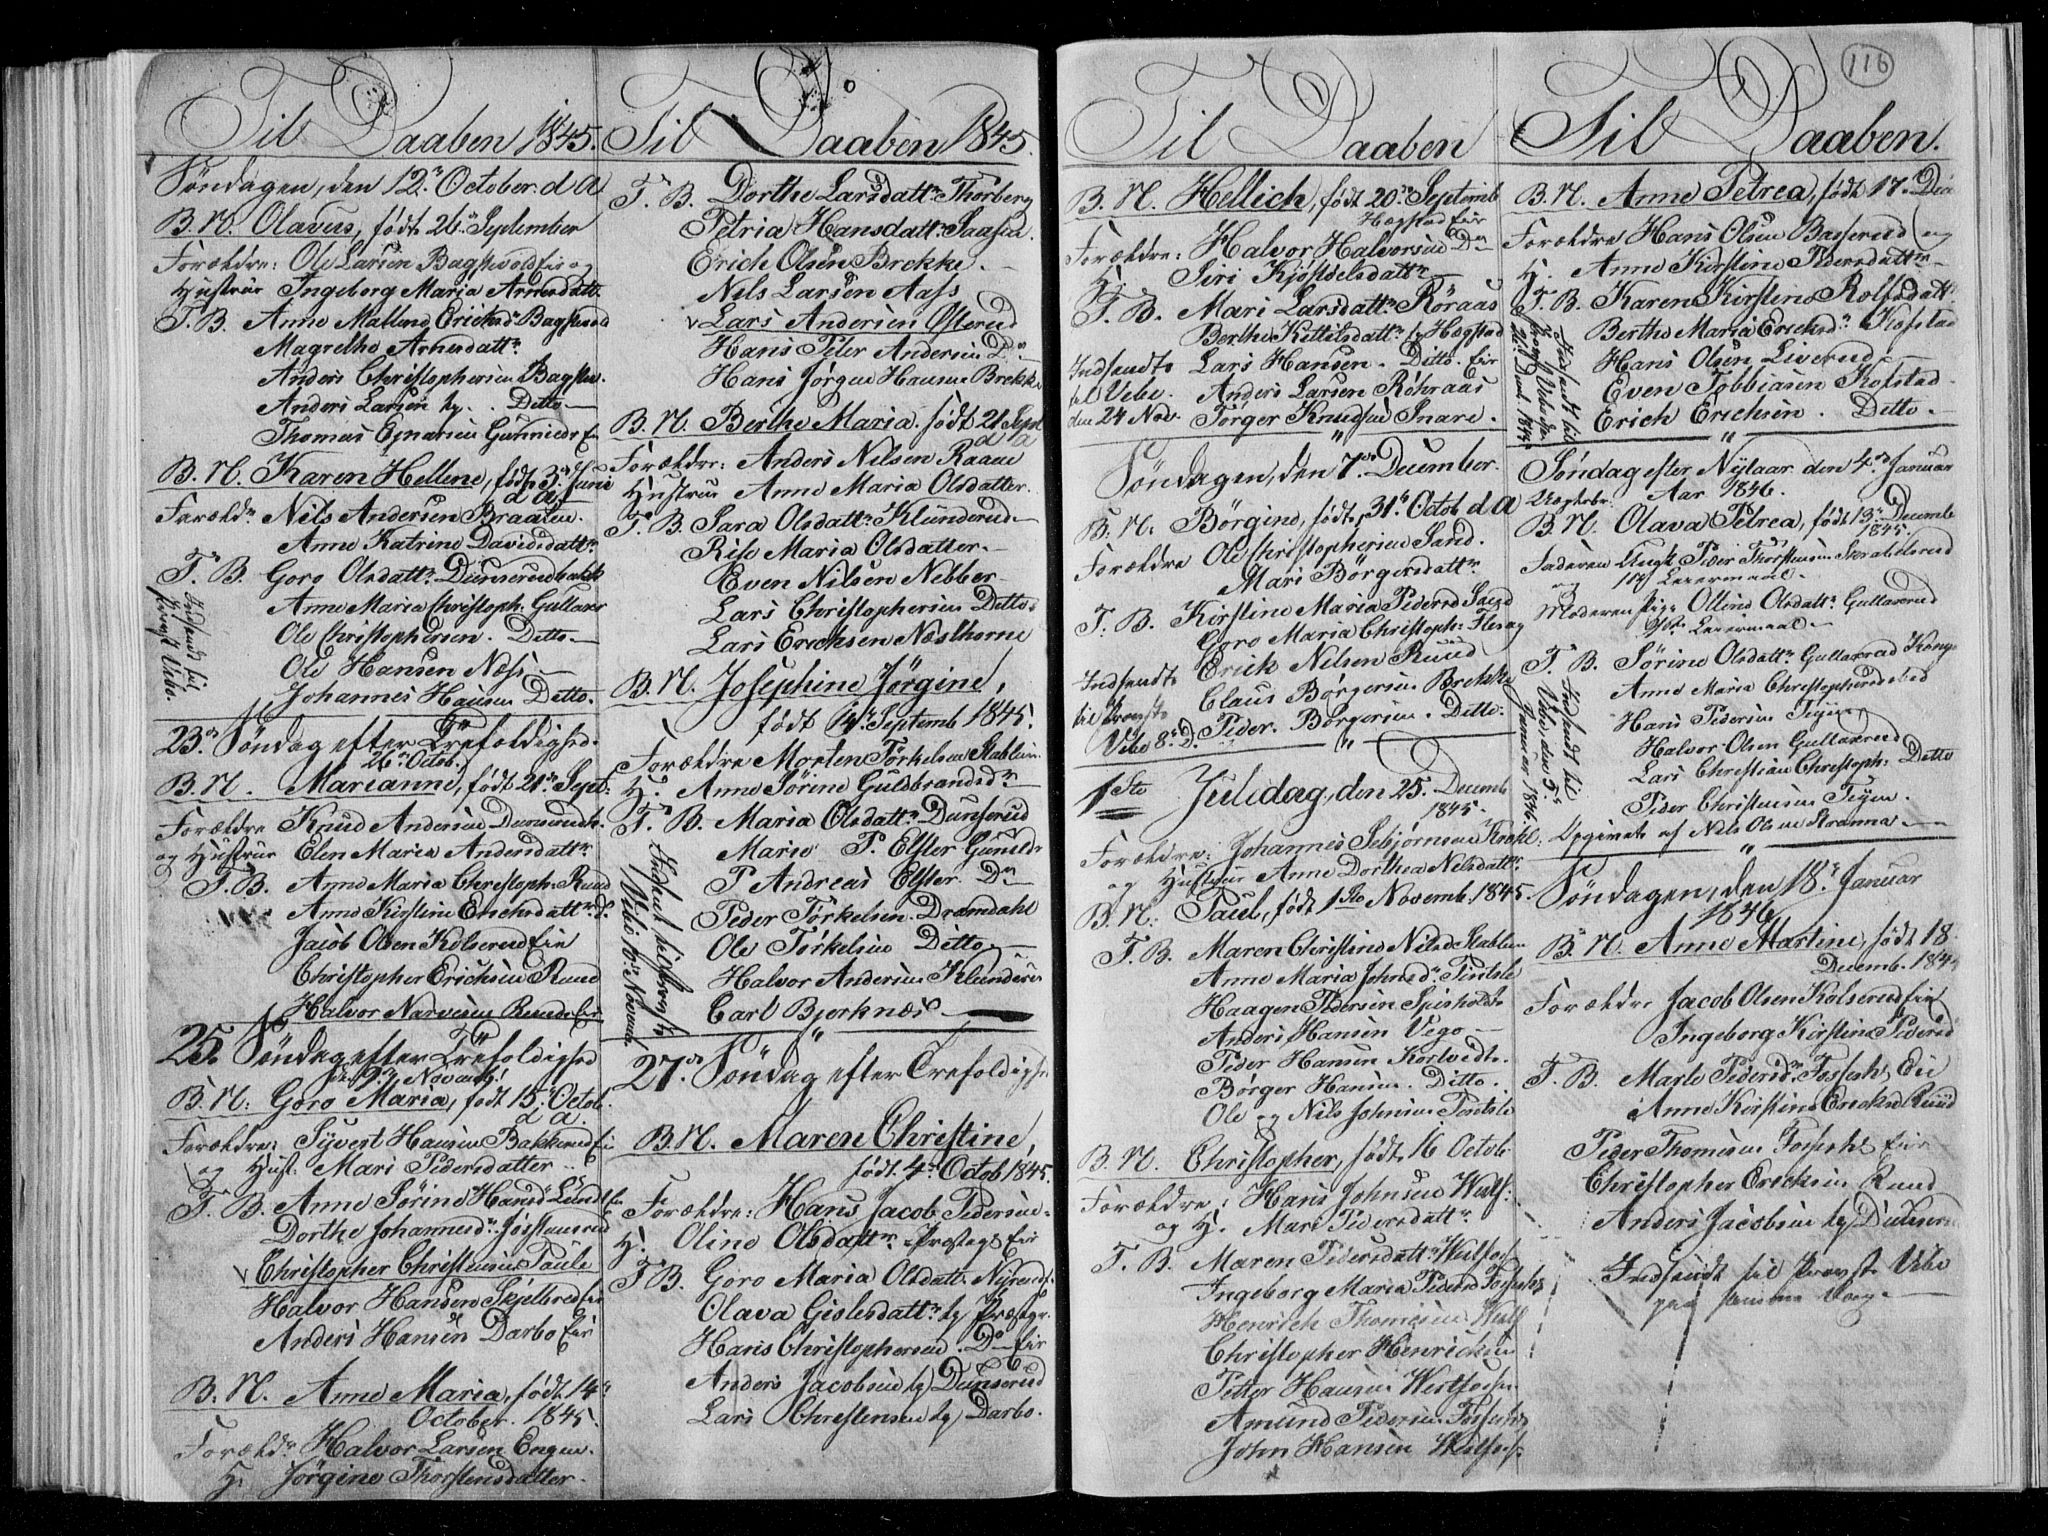 Til Daaben 1845.
Søndagen, den 12te October d A
B. N. Olavus, født 26de September
Forældre: Ole Larsen Bagstvold Eir og
Hustrue Ingeborg Maria Arnesdatt.
T. B. Anne Mallene Ericksdr Bagstvold
Magrethe Arnesdattr
Anders Christophersen Bagstv.
Anders Larsen ty. Ditto
Thomas Gunnieds E
B. N. Karen Hellene, født 3de Juni
d a.
Foræld. Nils Andersen Braaten.
Anne Katrine Davidsdattr
T. B. Goro Olsdattr Dunserud
Anne Maria Christoph. Gullaxr
Ole Christophersen. Ditto
Ole Hansen Næss
Johannes Hansen Ditto.
Indsendt til
Provst Vibe.
23de Søndag efter Trefoldighed.
26de Octob.
B. N. Marianne, født 21de Sept.
Forældre Knud Andersen Dunserud
og Hustrue Elen Maria Andersdattr
T. B. Anne Maria Christoph. Ruud
Anne Kirstine Ericksdattr D.
Jacob Olsen Kolserud Eie
Christopher Ericksen Ruud
Halvor Narvesen Ruud Eir
25de Søndag efter Trefoldighed
de 9de Novemb.
B. N. Goro Maria, født 15de Octob.
d a.
Forældre: Syvert Hansen Bakkerud Ei
og Hust: Mari Pedersdatter
T. B. Anne Sørine Hansdr Lund
Dorthe Johannesdr
Christopher Christensen Paule
Halvor Hansen Skjelbred Eir
Anders Hansen Darbo Eir
B. N. Anne Maria, født 14de
October. 1845.
Foræld. Halvor Larsen Engen.
H. Jørgine Thorstensdatter.
Til Daaben 1845.
T. B. Dorthe Larsdattr Thorberg
Petria Hansdattr Saasen
Erich Olsen Brekke.
Nils Larsen Aass
Lars Andersen Østerud
Hans Peter Andersen Do
Hans Jørgen Hansen Brekke
B. N. Berthe Maria. født 21 Sept
d a
Forældre: Anders Nilsen Raaen
Hustrue Anne Maria Olsdatter.
T. B. Sara Olsdattr Klunderud
Rise Maria Olsdatter.
Even Nilsen Nebber
Lars Christophersen Ditto
Lars Ericksen Næsthorne
B. N. Josephine Jørgine,
født 14de Septemb 1845.
Forældre Morten Torkelsen Stablum
H. Anne Sørine Guldbrandsdr
T. B. Maria Olsdattr Dunserud
Marie P. Elster
P Andreas Elster. Do
Peder Torkelsen. Dramdahl
Ole Torkelsen Ditto
Halvor Andersen Klunderu
Carl Bjerknæs
Indsent til Provst
Vibe 10de Novemb.
27de Søndag efter Trefoldigh
B. N. Maren Christine,
født 4de Octob 1845.
Forældre: Hans Jacob Pedersen
H. Oline Olsdattr Prestegs Eir
T B. Goro Maria Olsdatt.
Olava Gislesdattr ty Præstgr.
Hans Christophersen. Do Eir
Anders Jacobsen ty Dunserud
Lars Christensen ty Darbo.
116
Til Daaben
B. N. Hellich, født 20de Septemb
Hægstad Eir
Forældre: Halvor Halvorsen Do
H. Siri Kjøstelsdattr
T. B. Mari Larsdattr Röraas
Berthe Kittilsdattr ty Hægstad
Indsendt Lars Hansen. Ditto. Eir
til Vebe. Anders Larsen Röhraas
den 24 Nov. Torger Knudsen Snare.
Søndagen, den 7de December.
B. N. Börgine, født, 31te Octob d A
Forældre Ole Christophersen Sand.
Mari Börgersdattr
T. B. Kirstine Maria Pedersd Sand
Goro Maria Christoph.
Indsendt Erick Nilsen Ruud
til Provst Claus Börgersen Brekke
Vibe 8de D. Peder Börgersen. Ditto.
1ste Juledag, den 25de Decemb
1845.
Forældre: Johannes
og Hustrue Anne Dorthea Nilsdattr
B. N. Paul, født 1ste Novemb. 1845.
T. B. Maren Christine Nilsd. Stablum
Anne Maria Johnsdr Tentele
Haagen Pedersen Spisholdt
Anders Hansen Vego
Peder Hansen Kortvedt.
Börger Hansen. Ditto.
Ole og Nils Johnsen Tentele
B. N. Christopher, født 16 Octob
Forældre: Hans Johnsen Westf.
og H. Mari Pedersdattr
T. B. Maren Pedersdattr Westfos
Ingeborg Maria Pedersd Fossesh
Henrick Thomesen Westf
Christopher Henricksen
Petter Hansen Westfossen
Amund Pedersen Fossesh
John Hansen Westfoss
Til Daaben.
B. N. Anne Petrea, født 17de
Forældre Hans Olsen Basserud og
H. Anne Kirstine Pedersdattr
T. B. Karen Kirstine Rolfsdatt.
Berthe Maria Ericksdr Kofstad
Hans Olsen Liverud
Even Tobbiasen Kofstad
Erich Ericksen. Ditto.
Indsendt til
Provst Vebe den
Søndag efter Nytaar den 4de Januar
Uægtebr. Aar 1846.
B. N. Olava Petrea, født 13de Decemb
1845.
Faderen Ungk: Peder Thorstensen
og 1st Leiermaal.
Moderen Pige Olline Olsdattr Gullaxrud
Leiermaal.
T. B. Sørine Olsdattr Gullaxrud
Anne Maria Christophersd
Hans Pedersen Teigen
Halvor Olsen Gullaxrud
Lars Christian Christoph. Ditto
Peder Christensen Teigen.
Indsendt til
Vebe, den 5te
Januar 1846.
Opgivet af Nils Olsen Stranna
Søndagen, den 18de Januar
1846
B. N. Anne Martine, født 18
Decemb. 184
Forældre Jacob Olsen Kolserud Eie
Ingeborg Kirstine Pedersd
T. B. Marte Pedersdr Fossesh. Eie
Anne Kirstine Ericksd Ruud
Peder Thomesen Fossesh Eir
Christopher Ericksen Ruud
Anders Jacobsen ty Dunser
Indsendt til Provst Vibe
paa samme Dag.